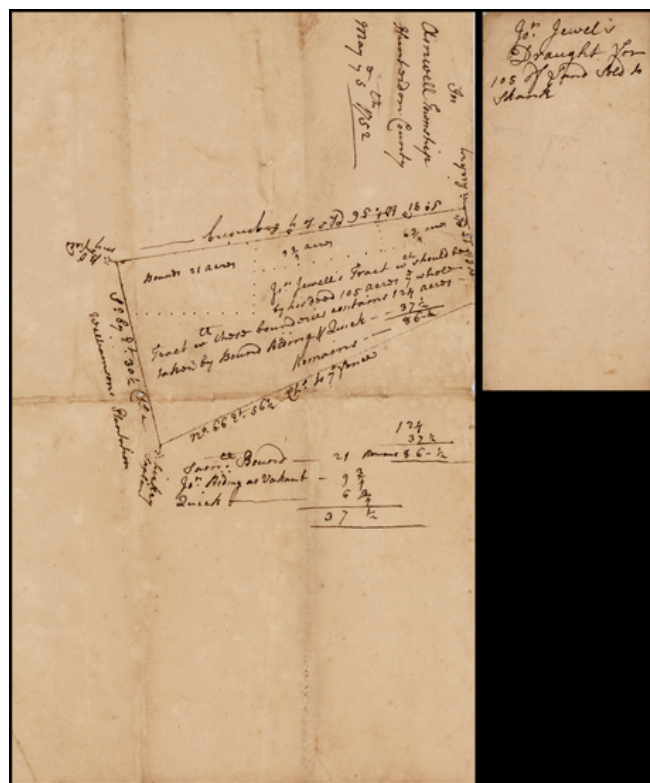 In
Amwell Township
Hunterdon County
May yᵉ 7ᵗʰ 1752
Bound 21 acres
9 3/4 acres
6 3/4 acres
Joⁿ Jewell's Tract wᶜʰ should be
by his deed 105 acres yᵉ whole
Tract wᵗʰ these bounderies contains 124 acres
taken by Bound Riding & Quick — 37 1/2
Remains — 86 1/2
Williamsons Plantation
No. 66 Wt. 56 1/2 Chs. to yᵉ fence
124
37 1/2
Remains 86 - 1/2
Samˡˡ Bound — 21
Joⁿ Riding as Vakant — 9 3/4
Quick — 6 3/4
37 1/2
Joⁿ Jewel's
Draught for
105 of Land Sold to
Shank